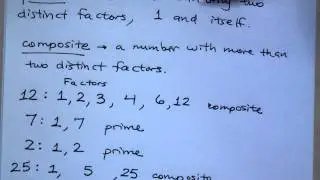 only two
distinct factors, 1 and itself.
composite → a number with more than
two distinct factors.
Factors
12: 1, 2, 3, 4, 6, 12 composite
7: 1, 7 prime
2: 1, 2 prime
25: 1, 5, 25 composite